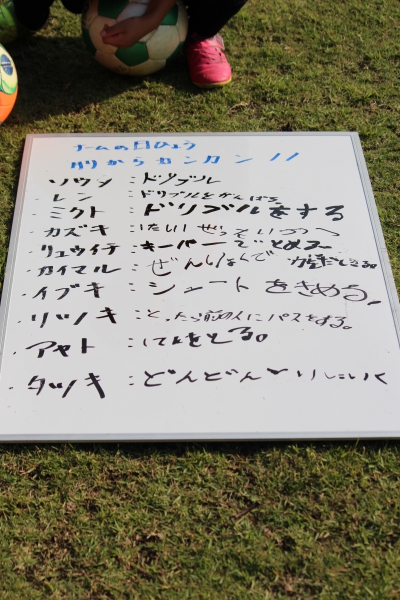 チームの目ひょう
からカンカン!!
ソウシ:ドリブル
・レン:ドリブルをがんばる
・ミクト:ドリブルをする
・カズキ:
・リュウイチ:キーパーでとめる
・カイマル:ぜんりょくで
・イブキ:シュートをきめる。
・リツキ:とったら前の人にパスをする。
・アヤト:をとる。
・タツキ:どんどんとりにいく